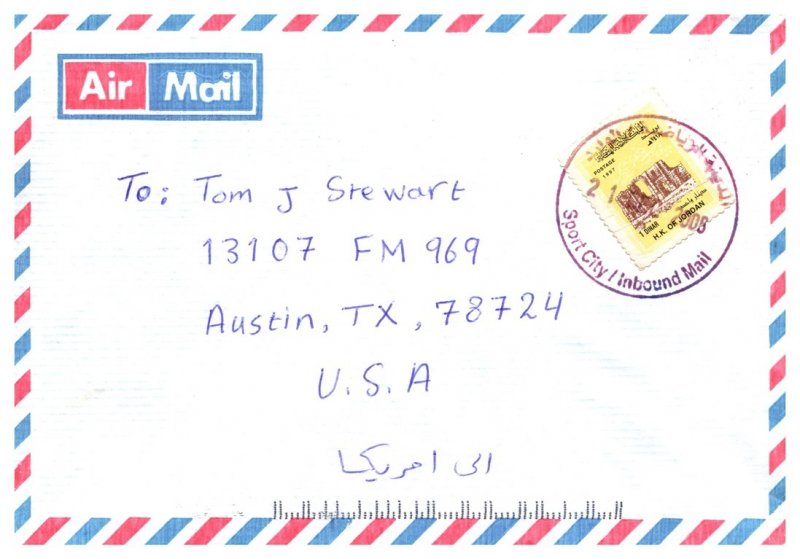 Air Mail
To: Tom J Stewart
13107 FM 969
Austin, TX, 78724
U.S.A
الى امريكا
POSTAGE
1997
1 DINAR
H.K. OF JORDAN
Sport City / Inbound Mail